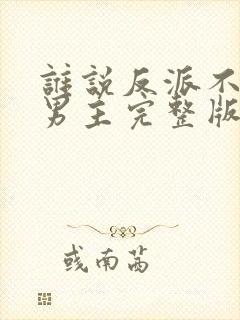 誰說反派不
男主完整版
或南茜